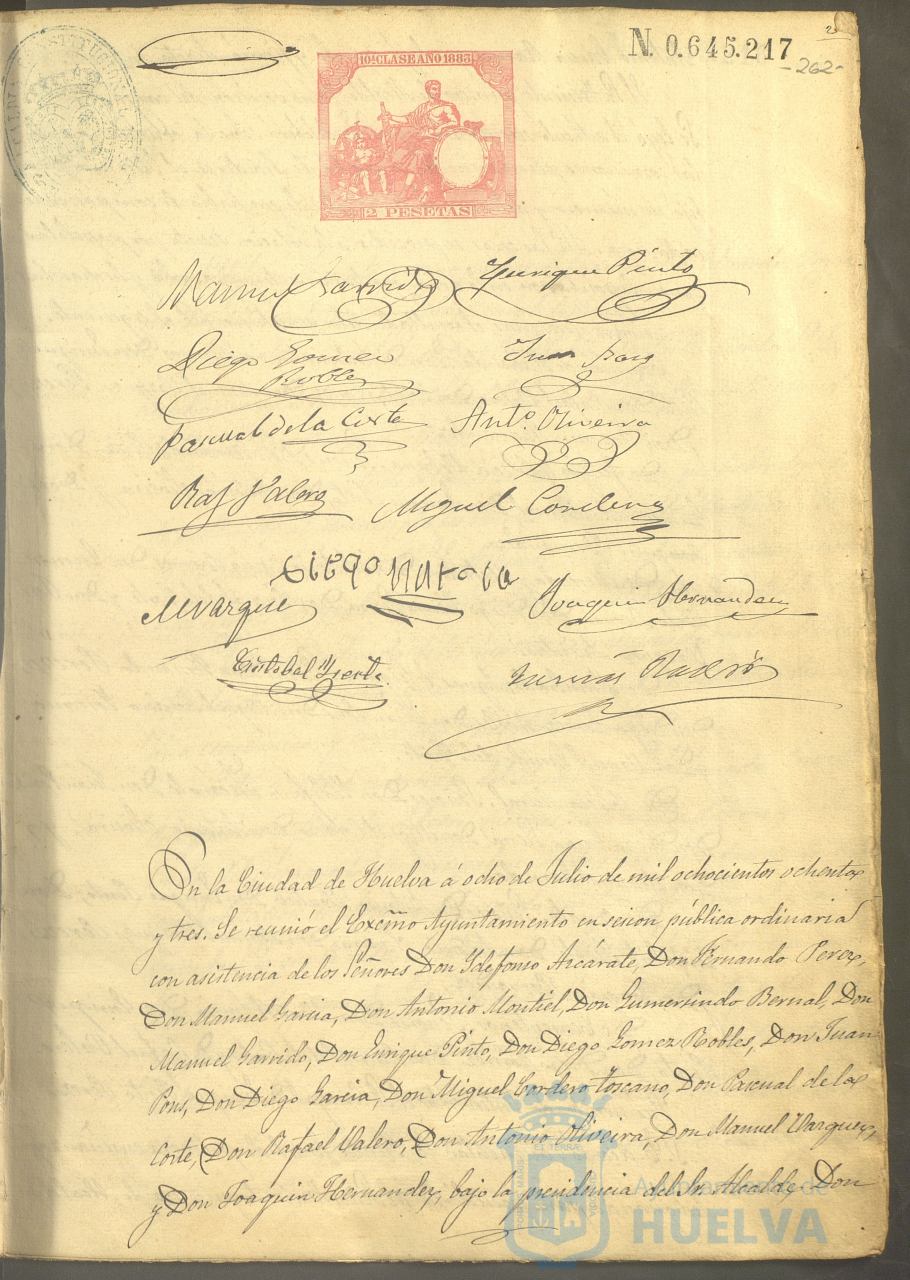 N. 0.645.217
-262-
10ª CLASE AÑO 1883
2 PESETAS
Manuel Garrido
Enrique Pinto
Diego Gomez
Robles
Juan
Pascual de la Corte
Antº. Oliveira
Raf Valero
Miguel Cordero
Diego Garcia
MVarquez
Joaquin Hernandez
Cristobal
En la Ciudad de Huelva á ocho de Julio de mil ochocientos ochenta
y tres. Se reunió el Excmo Ayuntamiento en sesion pública ordinaria
con asistencia de los Señores Don Ildefonso Azcárate, Don Fernando Perez,
Don Manuel Garcia, Don Antonio Montiel, Don Gumersindo Bernal, Don
Manuel Garrido, Don Enrique Pinto, Don Diego Gomez Robles, Don Juan
Pons, Don Diego Garcia, Don Miguel Cordero Toscano, Don Pascual de la
Corte, Don Rafael Valero, Don Antonio Oliveira, Don Manuel Varquez,
y Don Joaquin Hernandez, bajo la presidencia del Sr. Alcalde Don
Ayuntamiento de
HUELVA